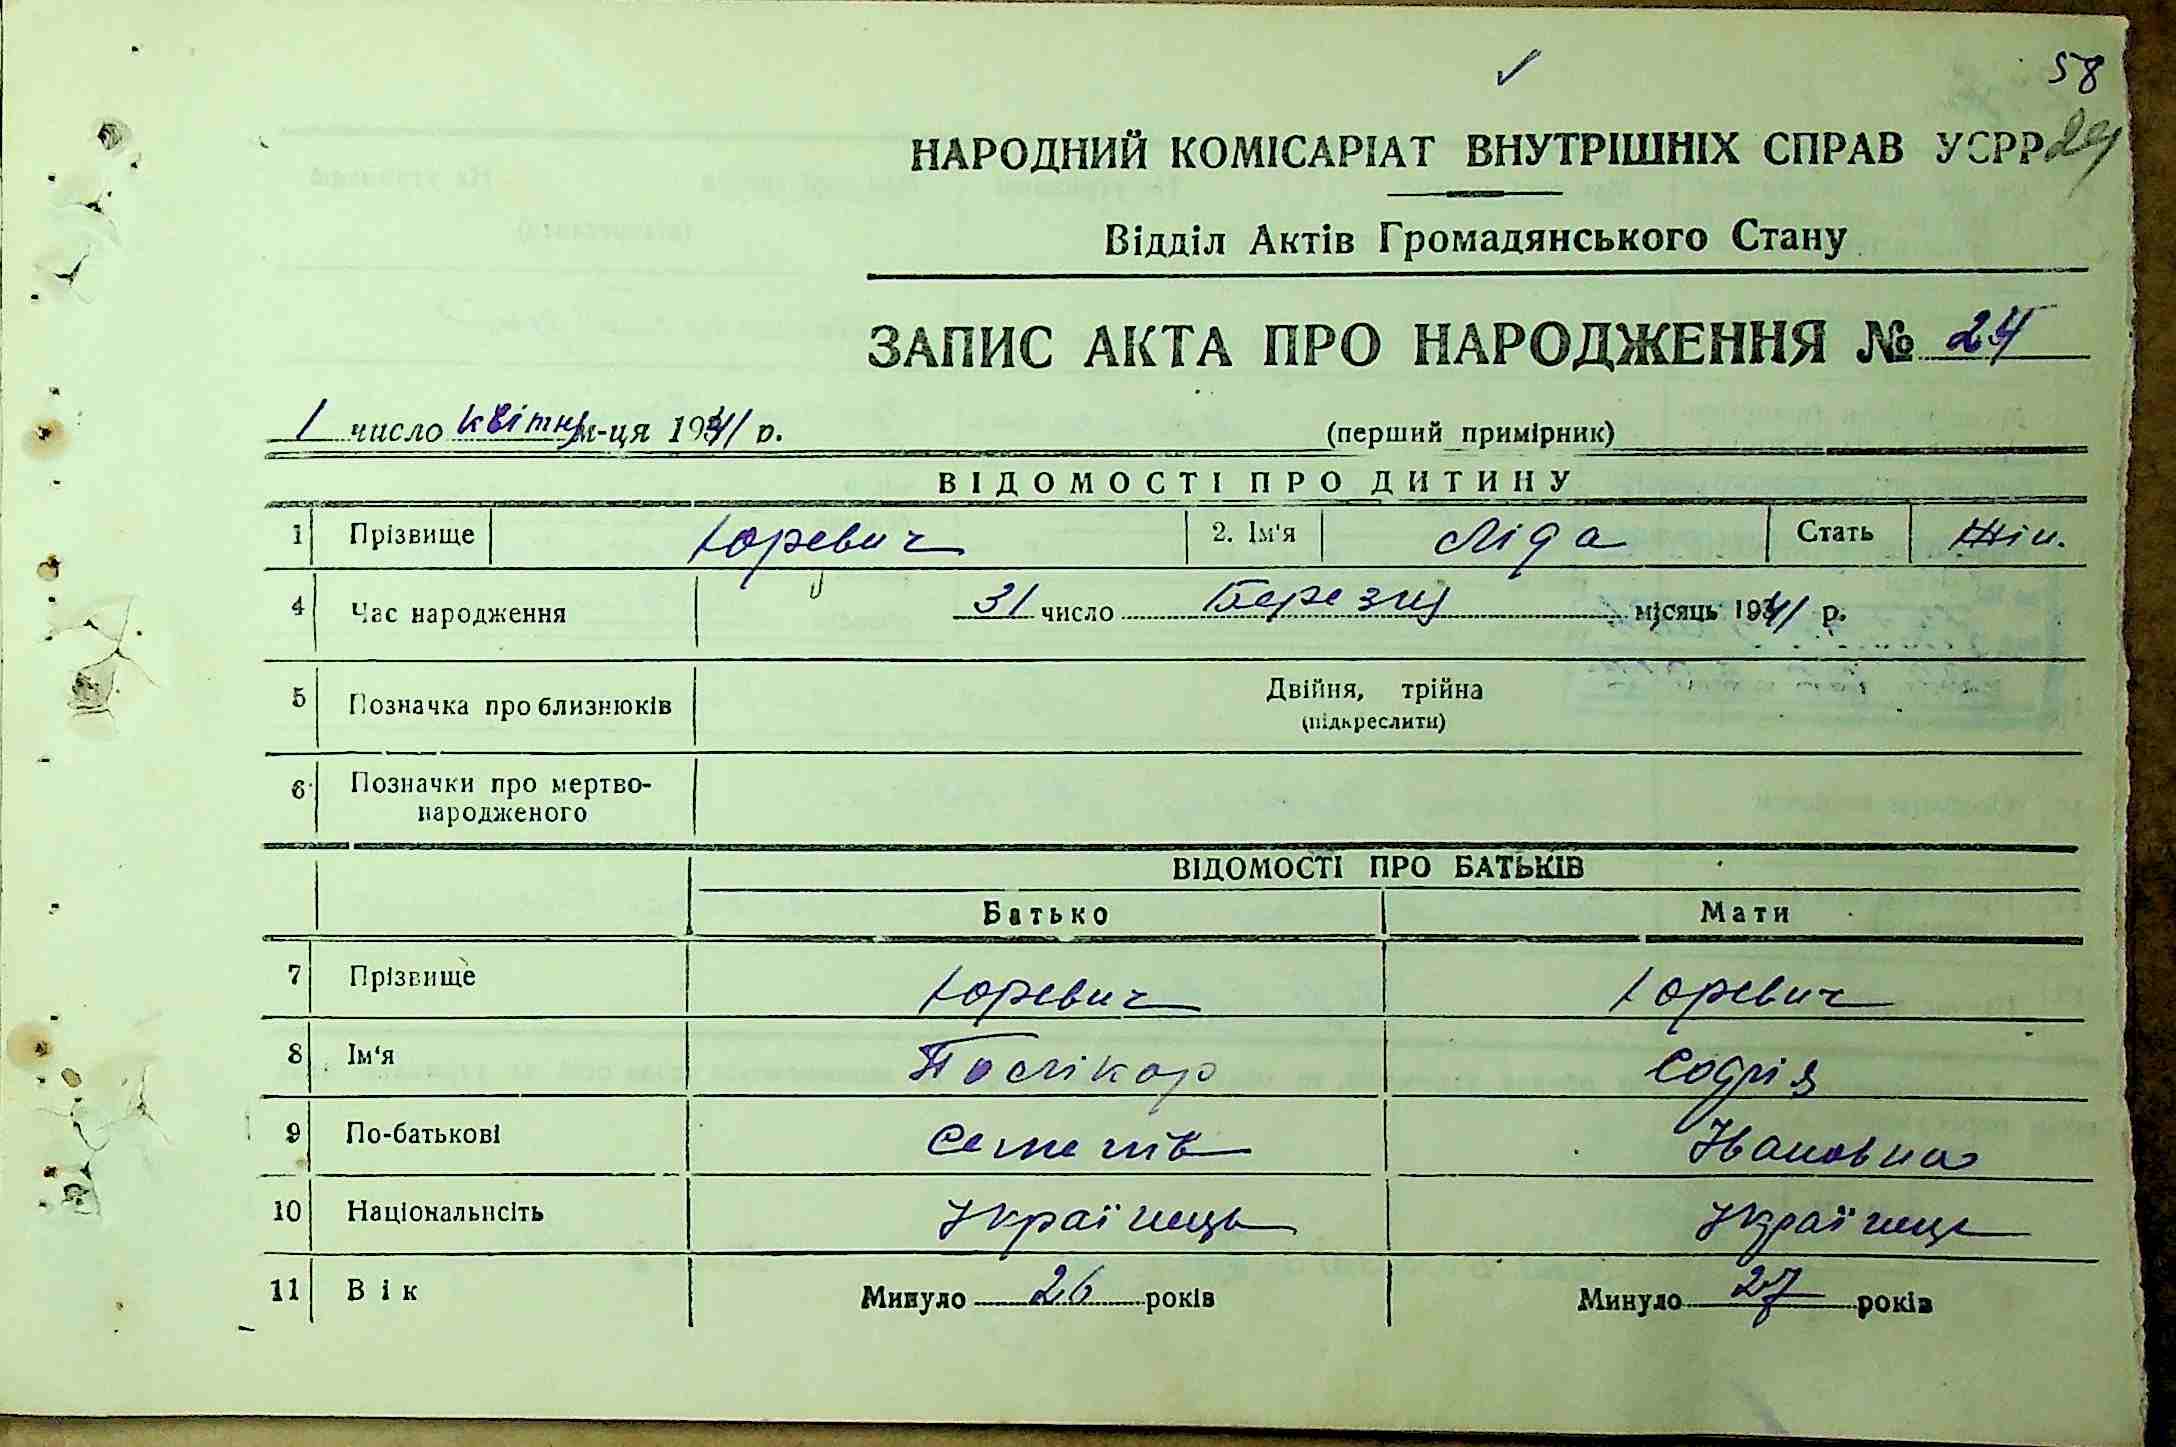 58
НАРОДНИЙ КОМІСАРІАТ ВНУТРІШНІХ СПРАВ УСРР
Відділ Актів Громадянського Стану
ЗАПИС АКТА ПРО НАРОДЖЕННЯ № 24
1 число квітня м-ця 1941 р. (перший примірник)
ВІДОМОСТІ ПРО ДИТИНУ
1 Прізвище Юревич 2. Ім'я Ліда Стать Жін.
4 Час народження 31 число Березня місяць 1941 р.
5 Позначка про близнюків Двійня, трійна
(підкреслити)
6 Позначки про мертво-
народженого
ВІДОМОСТІ ПРО БАТЬКІВ
Батько Мати
7 Прізвище Юревич Юревич
8 Ім'я Полікар Софія
9 По-батькові Івановна
10 Національнсіть Українець Українець
11 Вік Минуло 26 років Минуло 27 років